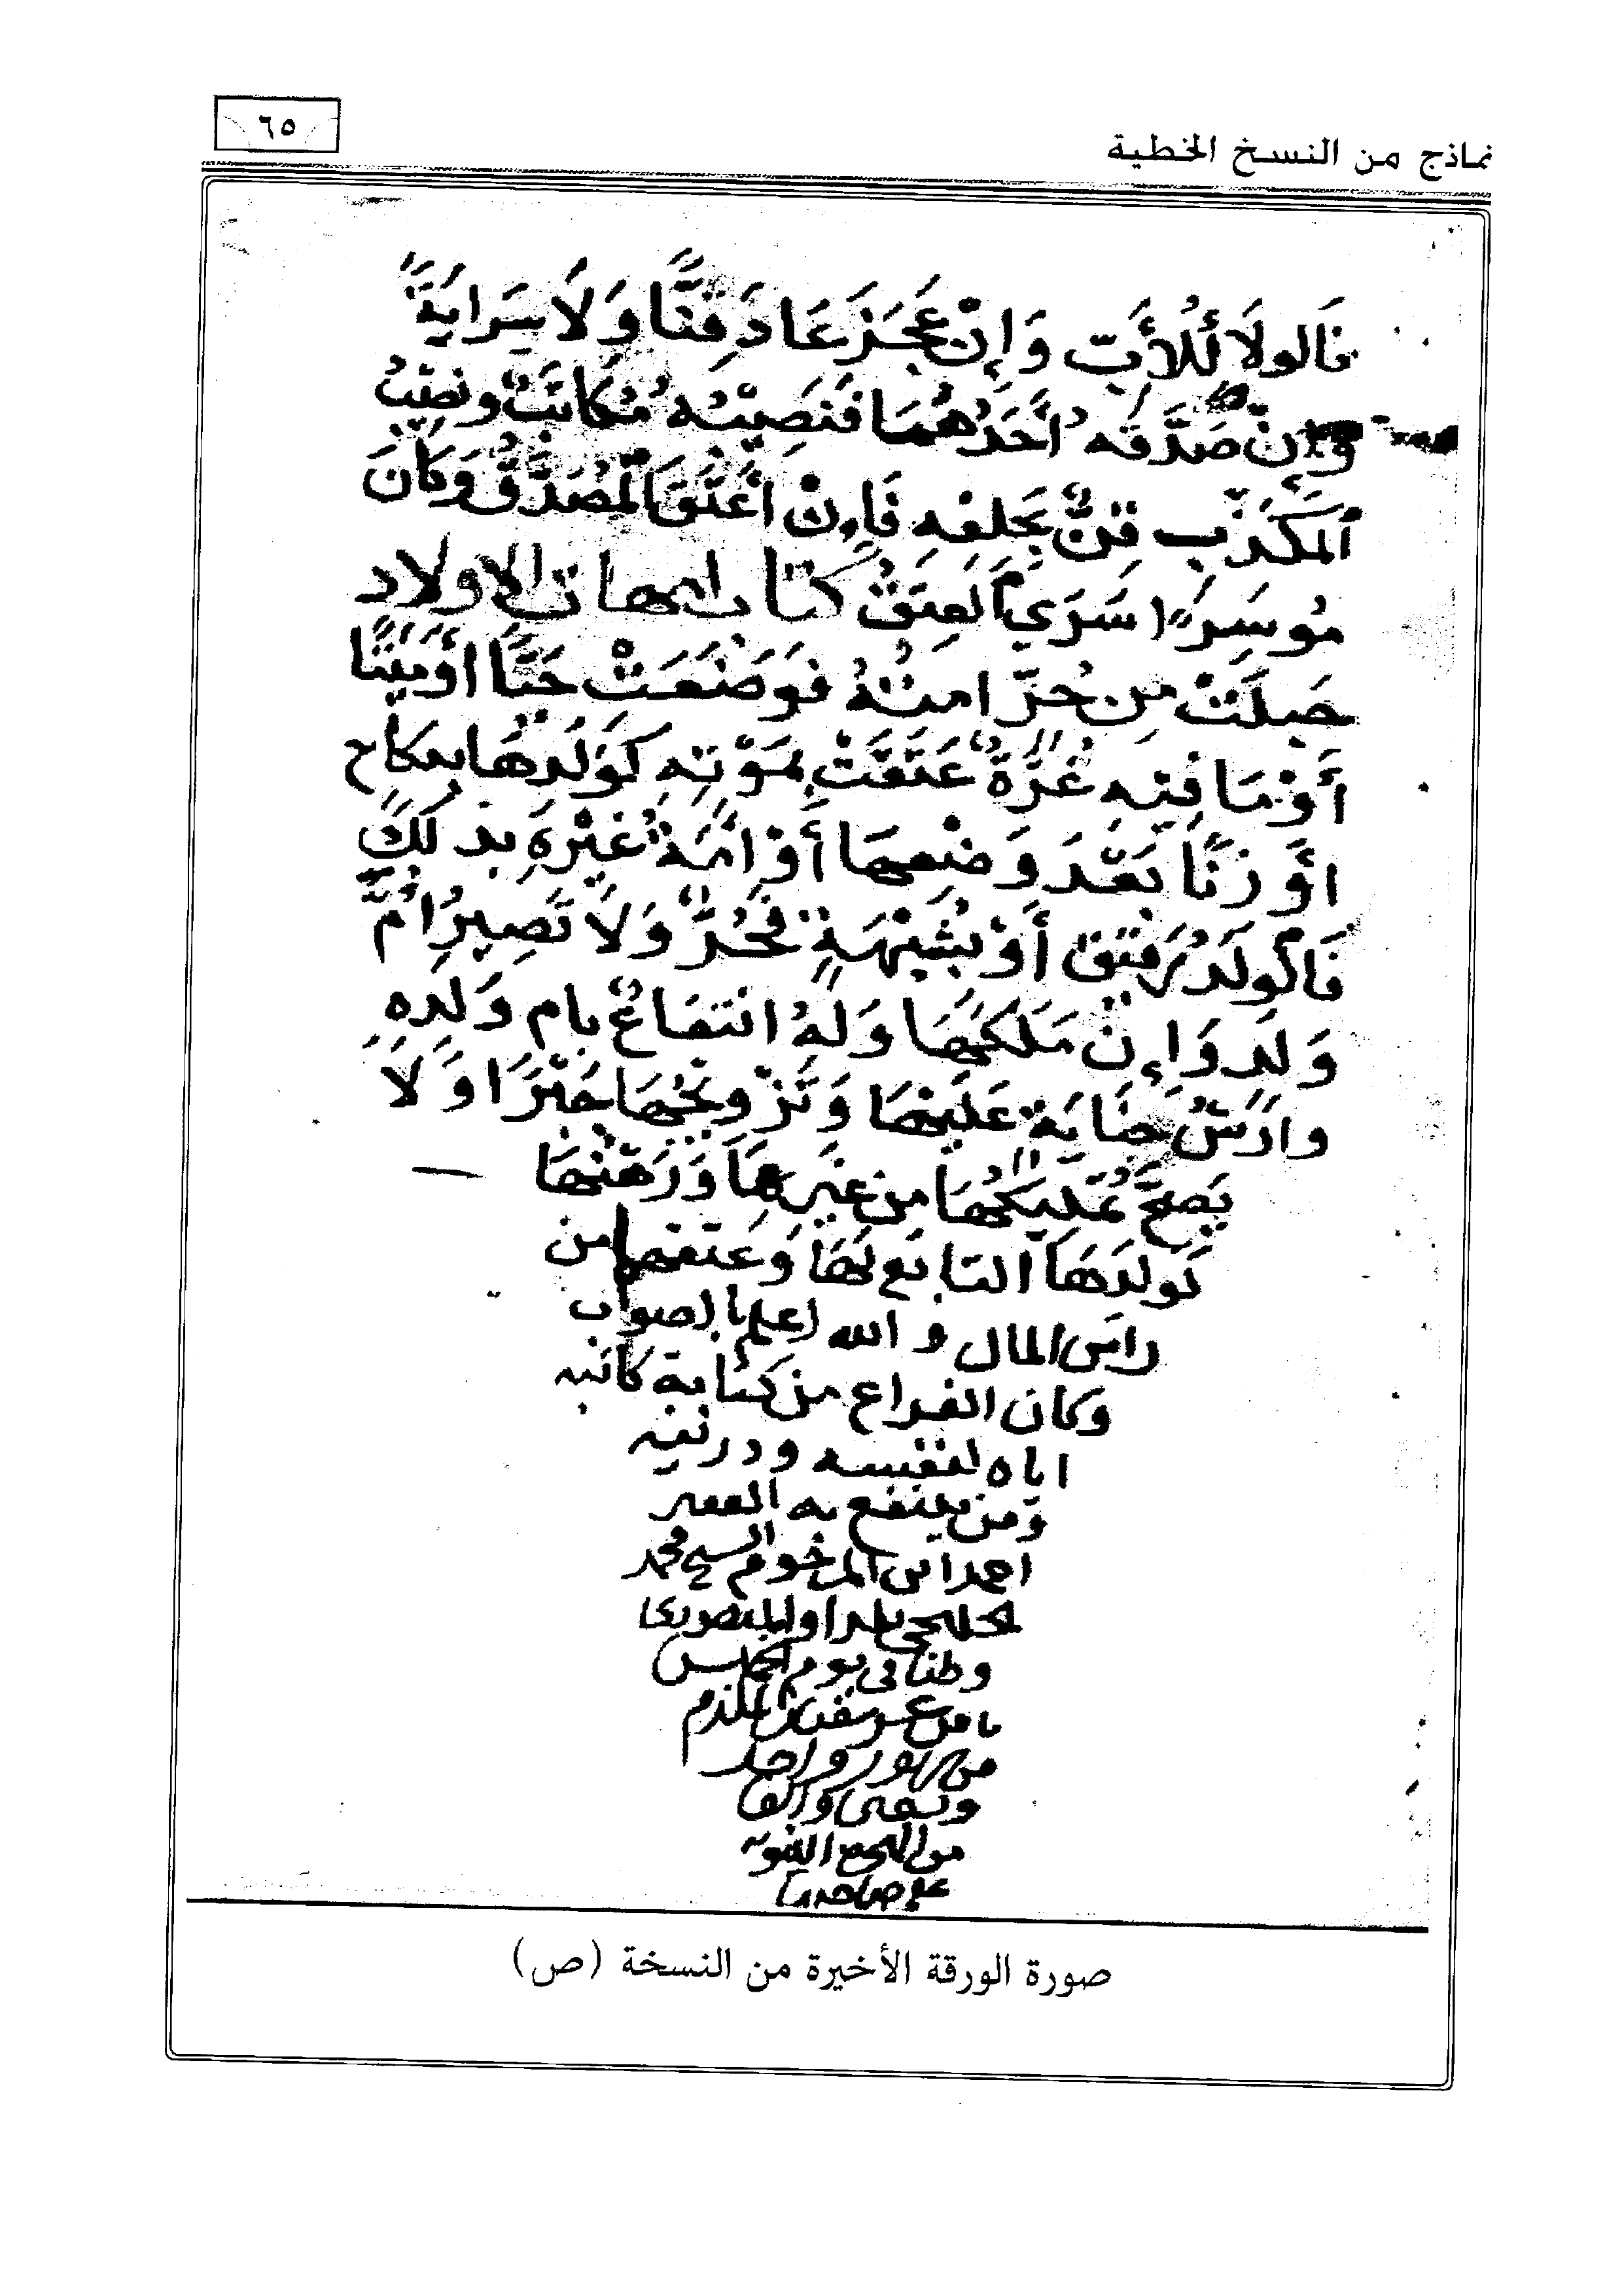 نماذج من النسخ الخطية
٦٥
فَالولَاءُ لِلأَبِ وَإِنْ عَجَزَ عَادَ قِنًّا وَلَا سِرَايَةَ
وَإِنْ صَدَّقَهُ أَحَدُهُمَا فَنَصِيبُهُ مُكَاتَبٌ ونصيبُ
الْمكَذِّبِ قِنٌّ بِحَلفِهِ فَإِنْ أَعْتَقَ الْمُصَدِّقُ وَكَانَ
مُوسِرًا سَرَى الْعِتقُ كتاب امهات الاولاد
حَبِلَتْ مِن حُرٍّ امتُهُ فَوَضَعَتْ حَيًّا أَوْ مَيِّتًا
أَوْ مَا فِيْهِ غُرَّةٌ عَتَقَتْ بِمَوْتِهِ كَوَلَدِهَا بنكاح
اَوْ زِنًا بَعْدَ وَضْعِهَا أَوْ اَمَةُ غَيْرِهِ بذلكَ
فَالْولَدُ رَقيق أَوْ بشُبْهَةٍ فَحُرٌّ وَلَا تَصِيرُ اُمَّ
وَلَدٍ وَإِنْ مَلَكَهَا وَلَهُ انتفَاعٌ بام وَلَدِهِ
وارْشُ جنَايَة عَلَيْهَا وَتَزْويجُهَا جَبْرًا وَلَا
يَصِحُّ تمليكُهَا مِن غيرِهَا وَرَهْنُهَا
كولدهَا التابع لهَا وَعتقهما من
راس المال و الله اعلم بالصواب
وكان الفراغ من كتابة كاتبه
اياه لنفسه وذريته
ومن ينتفع به الفقير
احمد ابن المرحوم الشيخ محمد
وطنا في يوم الخميس
من شهور واحد
وتسعين والف
من الهجرة النبوية
على صاحبها
صورة الورقة الأخيرة من النسخة (ص)